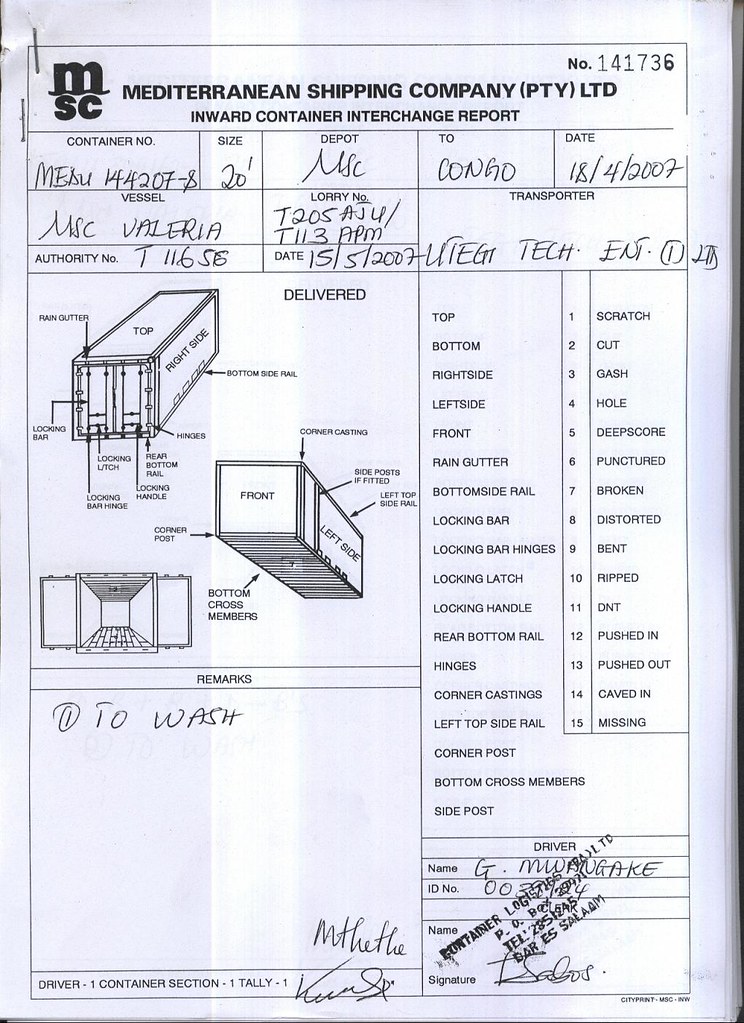 No. 141736
msc
MEDITERRANEAN SHIPPING COMPANY (PTY) LTD
INWARD CONTAINER INTERCHANGE REPORT
CONTAINER NO. SIZE DEPOT TO DATE
MEDU 144207-8 20' MSC CONGO 18/4/2007
VESSEL LORRY No. TRANSPORTER
MSC VALERIA T205 AJU/
T113 APM
UTEGI TECH. ENT. (1) LTD
AUTHORITY No. T 1165E DATE 15/5/2007
DELIVERED
RAIN GUTTER
TOP
RIGHT SIDE
BOTTOM SIDE RAIL
LOCKING
BAR
HINGES
LOCKING
L/TCH
REAR
BOTTOM
RAIL
LOCKING
BAR HINGE
LOCKING
HANDLE
CORNER CASTING
SIDE POSTS
IF FITTED
FRONT
LEFT TOP
SIDE RAIL
LEFT SIDE
CORNER
POST
BOTTOM
CROSS
MEMBERS
TOP 1 SCRATCH
BOTTOM 2 CUT
RIGHTSIDE 3 GASH
LEFTSIDE 4 HOLE
FRONT 5 DEEPSCORE
RAIN GUTTER 6 PUNCTURED
BOTTOMSIDE RAIL 7 BROKEN
LOCKING BAR 8 DISTORTED
LOCKING BAR HINGES 9 BENT
LOCKING LATCH 10 RIPPED
LOCKING HANDLE 11 DNT
REAR BOTTOM RAIL 12 PUSHED IN
HINGES 13 PUSHED OUT
CORNER CASTINGS 14 CAVED IN
LEFT TOP SIDE RAIL 15 MISSING
CORNER POST
BOTTOM CROSS MEMBERS
SIDE POST
REMARKS
① TO WASH
Mthethe
DRIVER - 1 CONTAINER SECTION - 1 TALLY - 1
DRIVER
Name G. MWANGAKE
ID No.
CLERK
Name
CONTAINER LOGISTICS LTD
P. O. BOX
TEL:
DAR ES SALAAM
Signature
CITYPRINT - MSC - INW